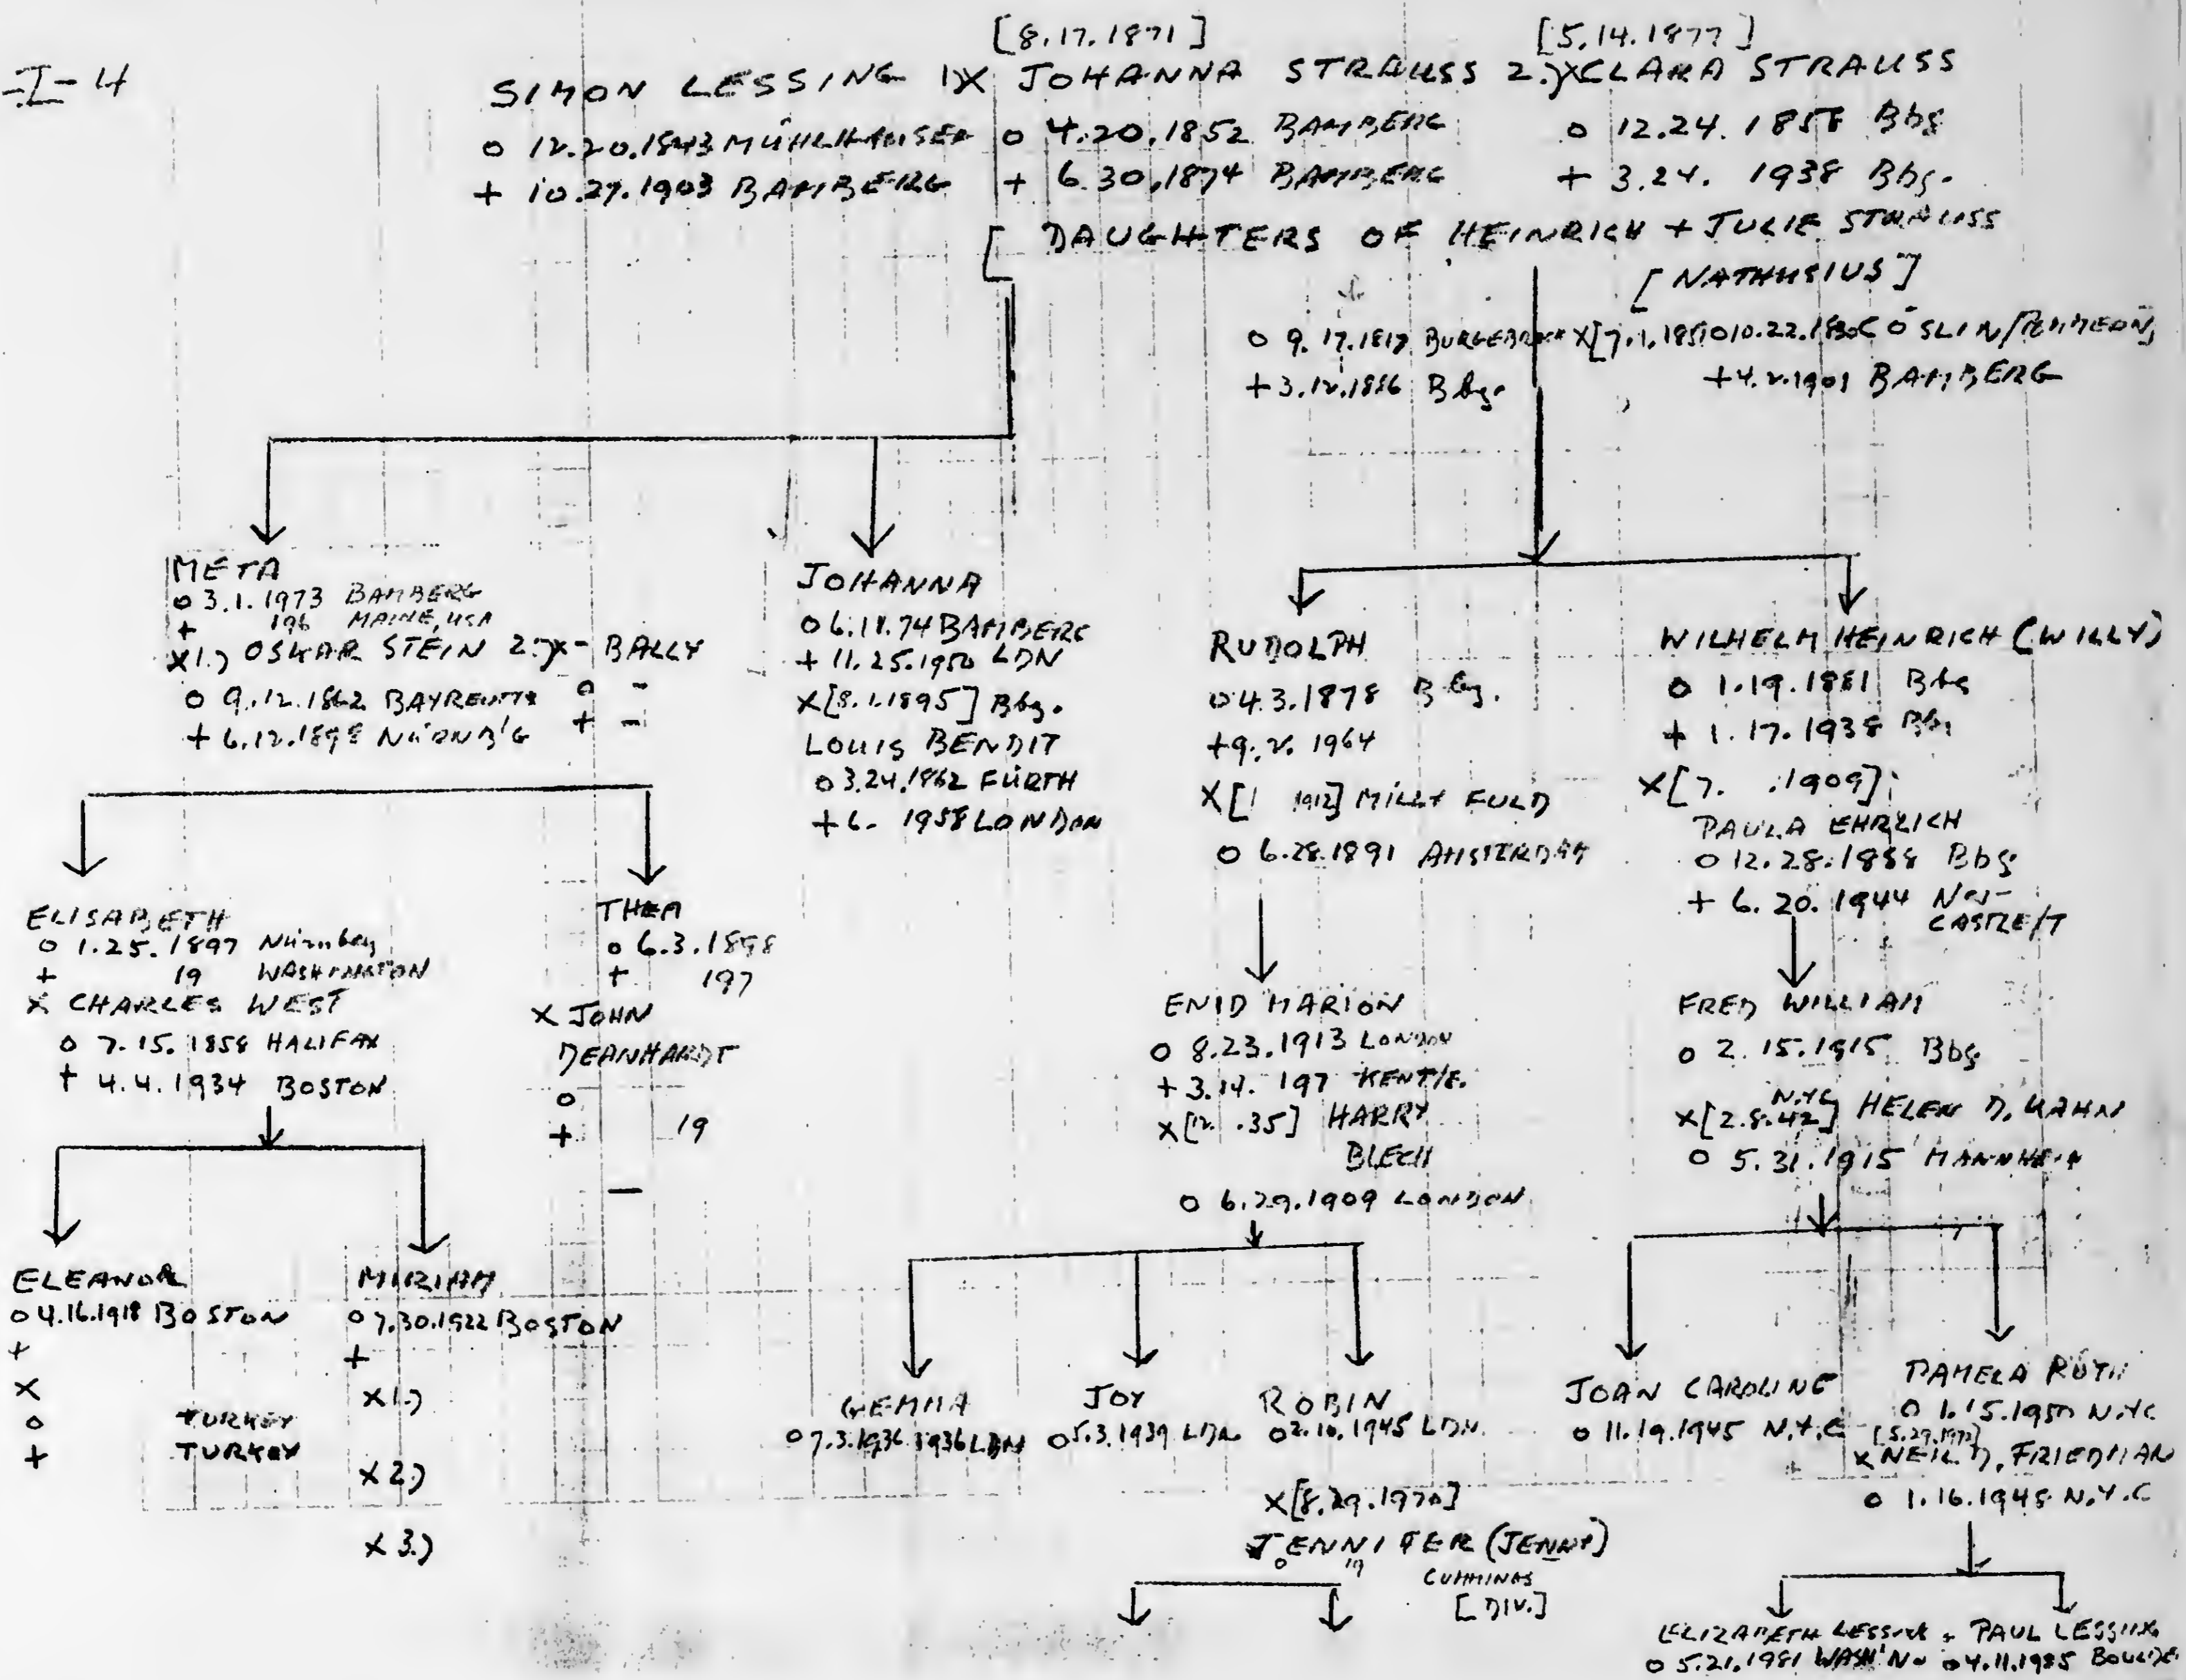 -I-4
[8.17.1871] [5.14.1877]
SIMON LESSING 1)X JOHANNA STRAUSS 2.)X CLARA STRAUSS
o 12.20.1843 MÜHLHAUSEN o 4.20.1852 BAMBERG o 12.24.1858 Bbg
+ 10.27.1903 BAMBERG + 6.30.1874 BAMBERG + 3.24. 1938 Bbg.
[ DAUGHTERS OF HEINRICH + JULIE STRAUSS
[NATHUSIUS]
o 9.17.1817 BURGEBRACH X[7.1.1851 o 10.22.1830 CÖSLIN/POMMERN]
+ 3.12.1886 Bbg. + 4.2.1901 BAMBERG
META
o 3.1.1973 BAMBERG
+ 196 MAINE, USA
X1.) OSKAR STEIN 2.)X - BALLY
o 9.12.1862 BAYREUTH o -
+ 6.12.1898 NÜRNB'G + -
JOHANNA
o 6.18.74 BAMBERG
+ 11.25.1950 LDN
X[8.1.1895] Bbg.
LOUIS BENDIT
o 3.24.1862 FÜRTH
+ 6- 1958 LONDON
RUDOLPH
o 4.3.1878 Bbg.
+ 9.2.1964
X[1 1912] MILLY FULD
o 6.28.1891 AMSTERDAM
WILHELM HEINRICH (WILLY)
o 1.19.1881 Bbg
+ 1.17.1938 Bbg
X[7. .1909]
PAULA EHRLICH
o 12.28.1888 Bbg
+ 6.20.1944 New-
CASTLE/T
ELISABETH
o 1.25.1897 Nürnberg
+ 19 WASHINGTON
X CHARLES WEST
o 7.15.1858 HALIFAX
+ 4.4.1934 BOSTON
THEA
o 6.3.1898
+ 197
X JOHN
DEANHARDT
o
+ 19
—
ENID MARION
o 8.23.1913 LONDON
+ 3.14. 197 KENT/E.
X[12. .35] HARRY
BLECH
o 6.29.1909 LONDON
FRED WILLIAM
o 2.15.1915 Bbg
N.Y.C
X[2.8.42] HELEN D. KAHN
o 5.31.1915 MANNHEIM
ELEANOR
o 4.16.1918 BOSTON
+
X
o TURKEY
+ TURKEY
MIRIAM
o 7.30.1922 BOSTON
+
X1.)
X2.)
X3.)
GEMMA
o 7.3.1936 1936 LDN
JOY
o 5.3.1939 LDN
ROBIN
o 2.10.1945 LDN
X[8.29.1970]
JENNIFER (JENNY)
o 19 CUMMINGS
[DIV.]
JOAN CAROLINE
o 11.19.1945 N.Y.C
PAMELA RUTH
o 1.15.1950 N.Y.C
[5.29.1972]
X NEIL D. FRIEDMAN
o 1.16.1948 N.Y.C
ELIZABETH LESSING + PAUL LESSING
o 5.21.1981 WASH'N o 4.11.1985 BOULDE